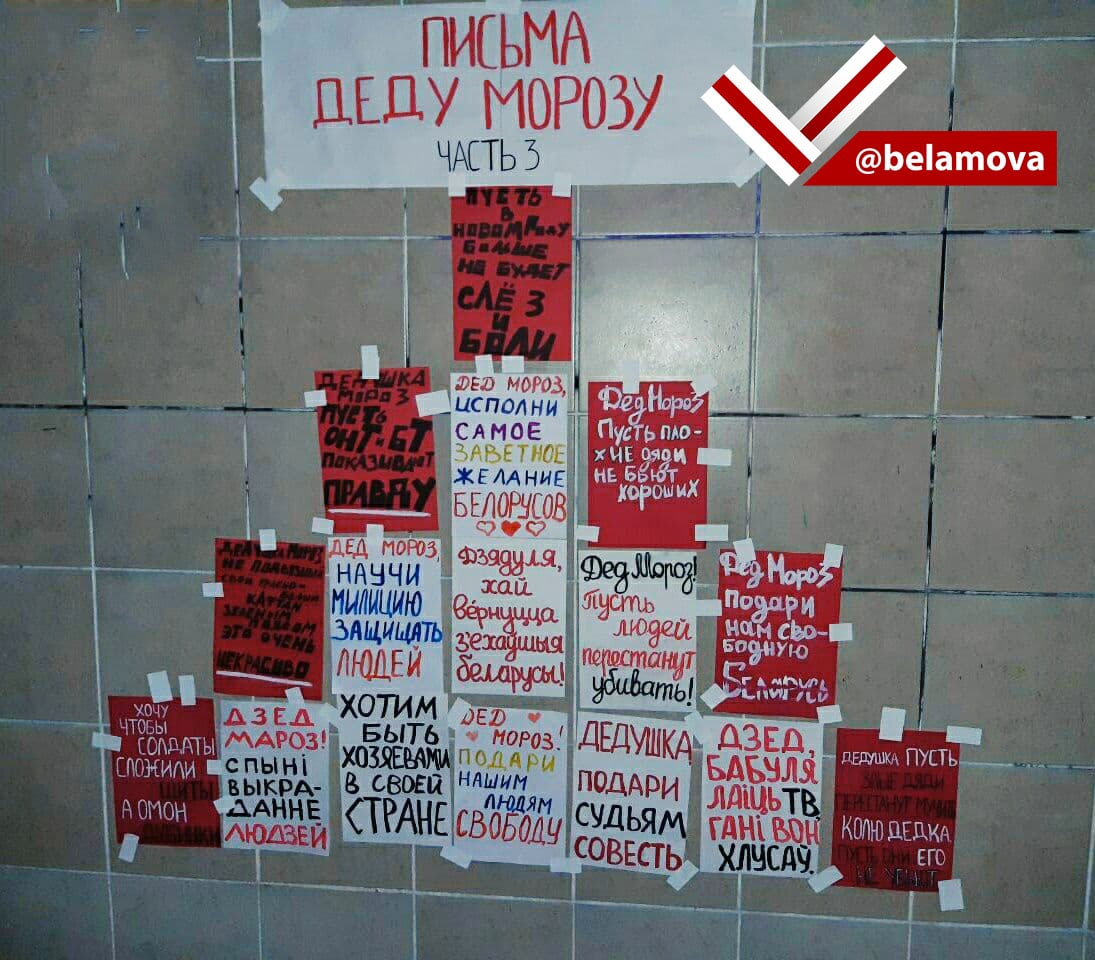 ПИСЬМА
ДЕДУ МОРОЗУ
ЧАСТЬ 3
@belamova
ПУСТЬ
В
НОВОМ ГОДУ
БОЛЬШЕ
НЕ БУДЕТ
СЛЁЗ
И
БОЛИ
ДЕДУШКА
МОРОЗ
ПУСТЬ
ОНТ и БТ
ПОКАЗЫВАЮТ
ПРАВДУ
ДЕД МОРОЗ,
ИСПОЛНИ
САМОЕ
ЗАВЕТНОЕ
ЖЕЛАНИЕ
БЕЛОРУСОВ
Дед Мороз
Пусть пло-
хие дяди
не бьют
хороших
МОРОЗ
НЕ
СВОЙ
КАФТАН
ЗЕЛЁНЫМ
ТАЗОМ
ЭТО ОЧЕНЬ
НЕКРАСИВО
ДЕД МОРОЗ,
НАУЧИ
МИЛИЦИЮ
ЗАЩИЩАТЬ
ЛЮДЕЙ
Дзядуля,
хай
вернуцца
з'ехаўшыя
беларусы!
Дед Мороз!
Пусть
людей
перестанут
убивать!
Дед Мороз
Подари
нам сво-
бодную
Беларусь
ХОЧУ
ЧТОБЫ
СОЛДАТЫ
СЛОЖИЛИ
ЩИТЫ
А ОМОН
ДУБИНКИ
ДЗЕД
МАРОЗ!
СПЫНІ
ВЫКРА-
ДАННЕ
ЛЮДЗЕЙ
ХОТИМ
БЫТЬ
ХОЗЯЕВАМИ
В СВОЕЙ
СТРАНЕ
ДЕД
МОРОЗ!
ПОДАРИ
НАШИМ
ЛЮДЯМ
СВОБОДУ
ДЕДУШКА
ПОДАРИ
СУДЬЯМ
СОВЕСТЬ
ДЗЕД,
БАБУЛЯ
ЛАІЦЬ ТВ,
ГАНІ ВОН
ХЛУСАЎ.
ДЕДУШКА ПУСТЬ
ЗЛЫЕ ДЯДИ
ПЕРЕСТАНУТ МУЧИТЬ
КОЛЮ ДЕДКА
ПУСТЬ ОНИ ЕГО
НЕ УБЬЮТ